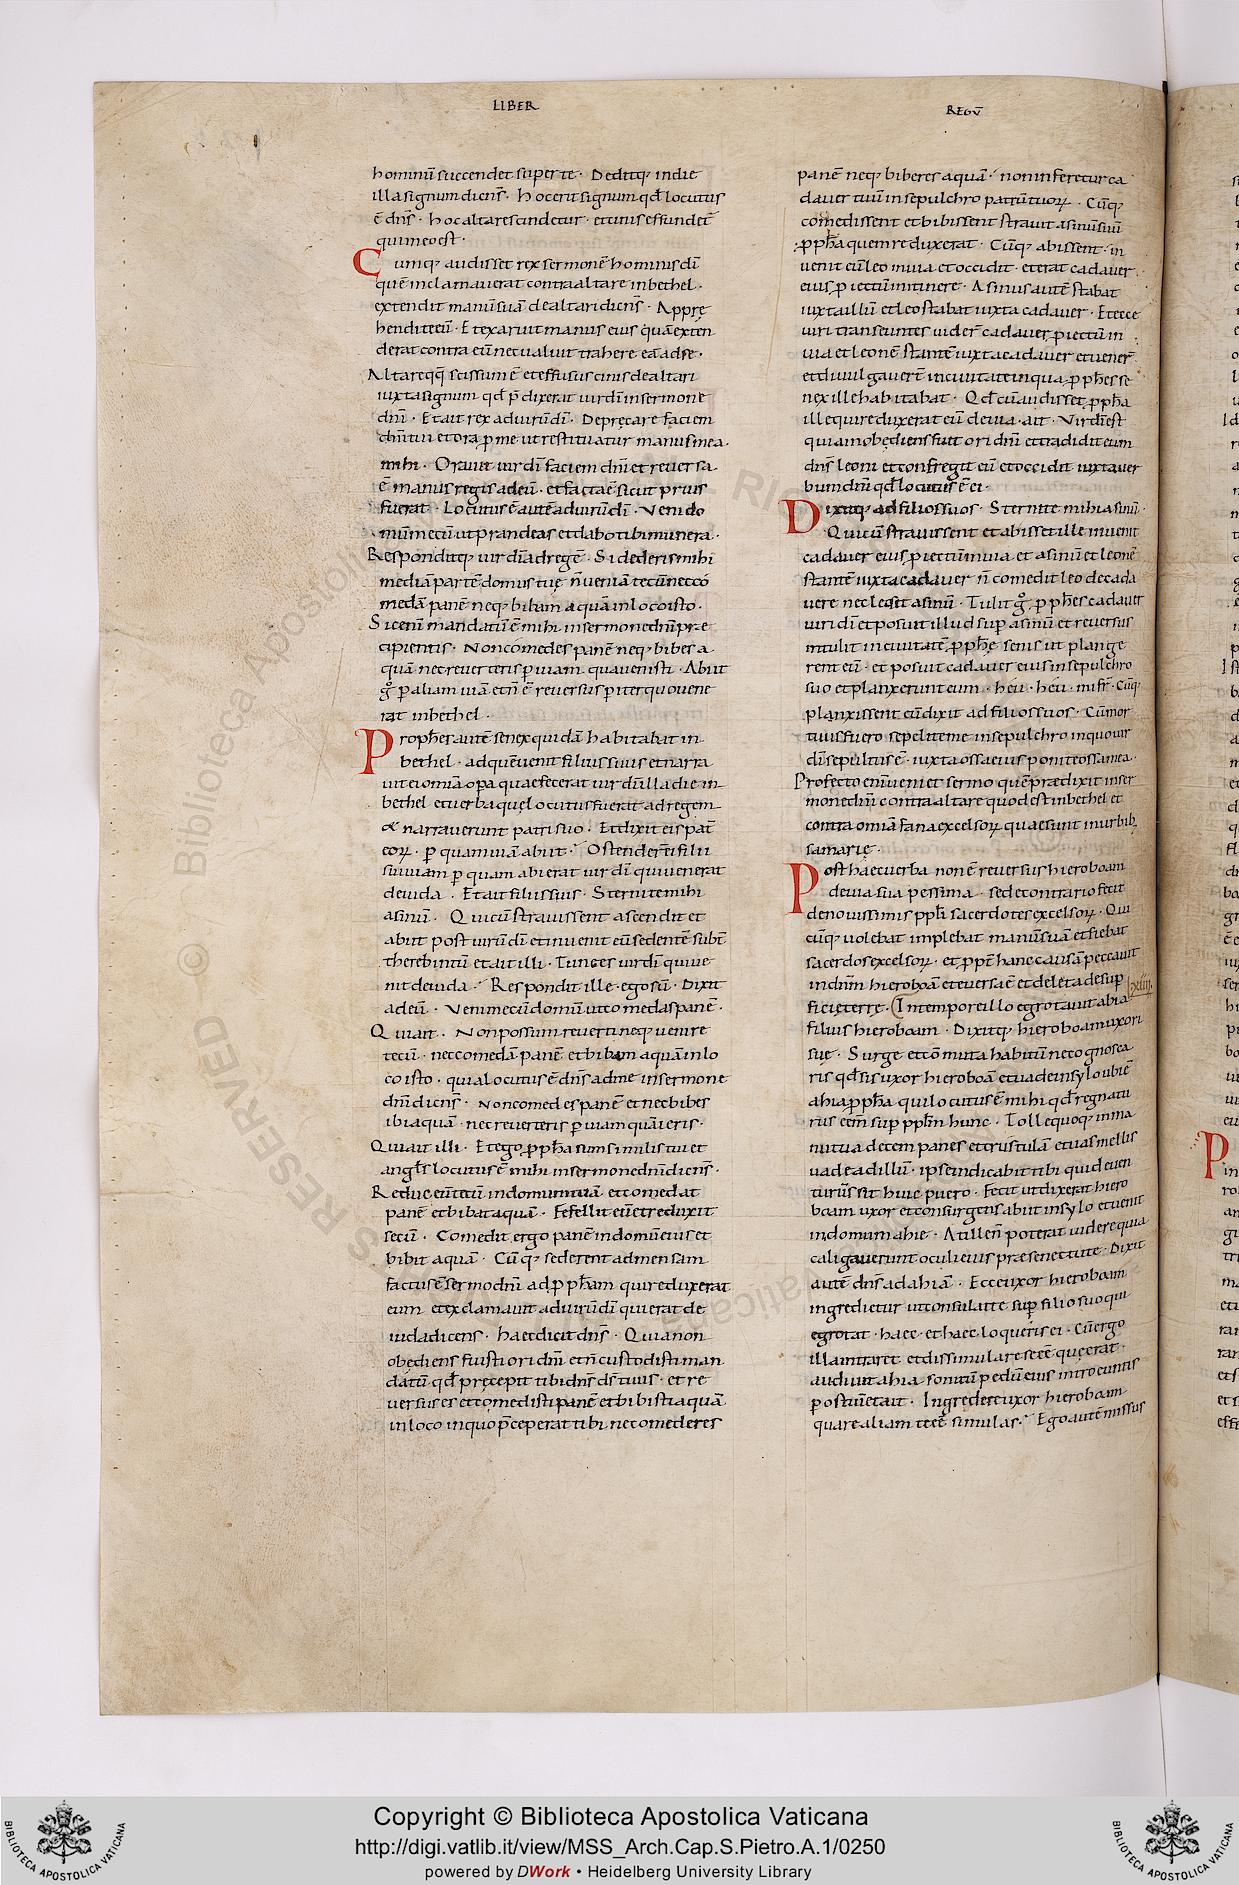 LIBER
REGŪ
hominū succendet super te · Deditq; in die
illa signum dicens · Hoc erit signum qđ locutus
ē dñs · hoc altare scindetur · et cinis effundet̄
qui in eo est ·
Cumq; audisset rex sermonē hominis dī
quē inclamauerat contra altare in bethel ·
extendit manū suā de altari dicens · Appre
hendite eū · Et exaruit manus eius quā exten
derat contra eū nec ualuit trahere eā ad se ·
Altare qq̄ scissum ē et effusus cinis de altari
iuxta signum qđ p̄dixerat uir dī in sermone
dñi · Et ait rex ad uirū dī · Deprecare faciem
dñi tui et ora p me ut restituatur manus mea
mihi · Orauit uir dī faciem dñi et reuersa
ē manus regis ad eū · et facta ē sicut prius
fuerat · Locutus ē autē ad uirū dī · Veni do
mum mecū ut prandeas et dabo tibi munera ·
Responditq; uir dī ad regē · Si dederis mihi
mediā partē domus tuę n̄ ueniā tecū nec co
medā panē neq; bibam aquā in loco isto ·
Sic eni mandatū ē mihi in sermone dñi prae
cipientis · Non comedes panē neq; bibes a
quā nec reuerteris p uiam qua uenisti · Abiit
g° p aliam uiā et n̄ ē reuersus p iter quo uene
rat in bethel ·
Prophes autē senex quidā habitabat in
bethel · ad quē uenit filius suus et narra
uit ei omīa opa quae fecerat uir dī illa die in
bethel et uerba quę locutus fuerat ad regem
& narrauerunt patri suo · Et dixit eis pat̄
eoꝝ · p quam uiā abiit · Ostender̄ ei filii
sui uiam p quam abierat uir dī qui uenerat
de iuda · Et ait filiis suis · Sternite mihi
asinū · Qui cū strauissent ascendit et
abiit post uirū dī et inuenit eū sedentē subt̄
therebintū et ait illi · Tu nees uir dī qui ue
nit de iuda · Respondit ille · ego sū · Dixit
ad eū · Veni mecū domū ut comedas panē ·
Qui ait · Non possum reuerti neq; uenire
tecū · nec comedā panē et bibam aquā in lo
co isto · quia locutus ē dñs ad me in sermone
dñi dicens · Non comedes panē et nec bibes
ibi aquā · nec reuerteris p uiam quā ieris ·
Qui ait illi · Et ego ꝓpħa sum similis tui et
angl's locutus ē mihi in sermone dñi dicens ·
Reduc eū tecū in domum tuā et comedat
panē et bibat aquā · Fefellit eū et reduxit
secū · Comedit ergo panē in domū eius et
bibit aquā · Cūq; sederent ad mensam
factus ē sermo dñi ad ꝓpħam qui reduxerat
eum et exclamauit ad uirū dī qui uerat de
iuda dicens · haec dicit dñs · Quia non
obędiens fuisti ori dñi et n̄ custodisti man
datū qđ pręcepit tibi dñs ds̄ tuus · et re
uersus es et comedisti panē et bibisti aquā
in loco in quo p̄ceperat tibi ne comederes
panē neq; biberes aquā · non inferetur ca
dauer tuū in sepulchro patrū tuoꝝ · Cūq;
comedissent et bibissent strauit asinū suū
ꝓpħa quem reduxerat · Cūq; abissent in
uenit eū leo in uia et occidit · et erat cadauer
eius ꝓiectū in itinere · Asinus autē stabat
iuxta illū et leo stabat iuxta cadauer · Et ecce
uiri transeuntes uider̄ cadauer ꝓiectū in
uia et leonē stantē iuxta cadauer et uener̄
et diuulgauer̄t in ciuitate in qua ꝓphes se
nex ille habitabat · Qđ cū audisset ꝓpħa
ille qui reduxerat eū de uia · ait · Vir dī est
qui inobędiens fuit ori dñi et tradidit eum
dñs leoni et confregit eū et occidit iuxta uer
bum dñi qđ locutus ē ei ·
Dixitq; ad filios suos · Sternite mihi asinū ·
Qui cū strauissent et abisset ille inuenit
cadauer eius ꝓiectū in uia et asinū et leonē
stantē iuxta cadauer n̄ comedit leo de cada
uere nec lęsit asinū · Tulit g° ꝓphes cadauer
uiri dī et posuit illud sup asinū et reuersus
intulit in ciuitatē ꝓphę senis ut plange
rent eū · et posuit cadauer eius in sepulchro
suo et planxerunt eum · héu · héu · mi fr̄ · Cūq;
planxissent eū dixit ad filios suos · Cū mor
tuus fuero sepelite me in sepulchro in quo uir
dī sepultus ē · iuxta ossa eius ponite ossa mea ·
Profecto enī ueniet sermo quē praedixit in ser
mone dñi contra altare quod est in bethel et
contra omīa fana excelsoꝝ quae sunt in urbib;
samarię ·
Post haec uerba non ē reuersus hieroboam
de uia sua pessima · sed e contrario fecit
de nouissimis ppl'i sacerdotes excelsoꝝ · Qui
cūq; uolebat implebat manū suā et fiebat
sacerdos excelsoꝝ · et ꝓpt̄ hanc causā peccauit
in dn̄m hieroboā et euersa ē et deleta de sup
ficie terrę · In tempore illo egrotauit abia
xiiii
filius hieroboam · Dixitq; hieroboam uxori
suę · Surge et cōmuta habitū ne cognosca
ris qđ sis uxor hieroboā et uade in sylo ubi ē
ahia ꝓpħa qui locutus ē mihi qđ regnatu
rus eēm sup ppl'm hunc · Tolle quoq; in ma
nu tua decem panes et crustulā et uas mellis
uade ad illū · ipse indicabit tibi quid euen
turū sit huic puero · Fecit ut dixerat hiero
boam uxor et consurgens abiit in sylo et uenit
in domum ahie · At ille n̄ poterat uidere quia
caligauerunt oculi eius prae senectute · Dixit
autē dñs ad ahiā · Ecce uxor hieroboam
ingredietur ut consulat te sup filio suo qui
egrotat · haec · et haec loqueris ei · Cū ergo
illa intraret et dissimularet se eē quę erat ·
audiuit ahia sonitū pedū eius introeuntis
p ostiū et ait · Ingredere uxor hieroboam
quare aliam te eē simulas · Ego autē missus
Copyright © Biblioteca Apostolica Vaticana
http://digi.vatlib.it/view/MSS_Arch.Cap.S.Pietro.A.1/0250
powered by DWork • Heidelberg University Library